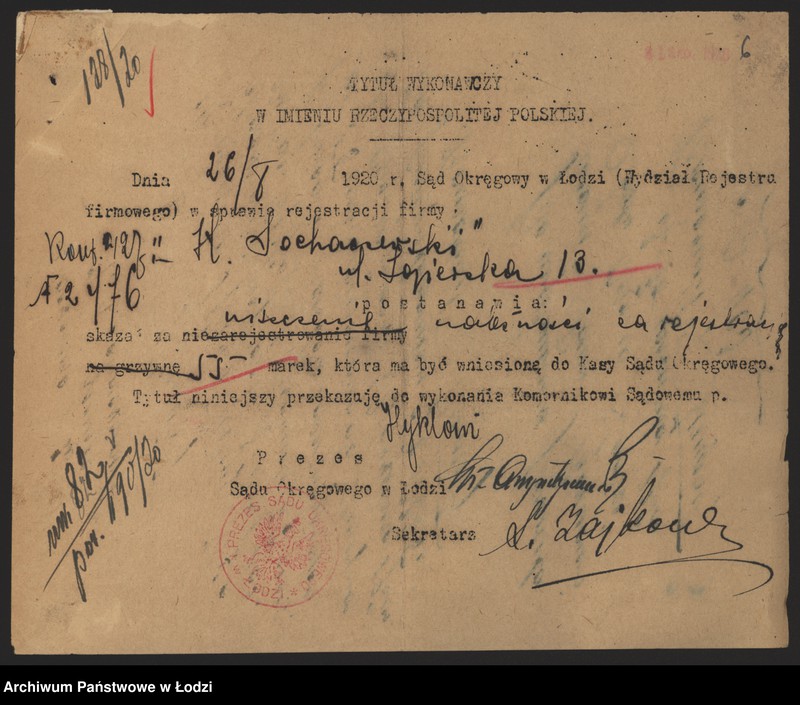 128/20
6
TYTUŁ WYKONAWCZY
W IMIENIU RZECZYPOSPOLITEJ POLSKIEJ.
Dnia 26/8 1920 r. Sąd Okręgowy w Łodzi (Wydział Rejestru
firmowego) w sprawie rejestracji firmy
„H. Sochaczewski"
ul. Zgierska 13.
postanawia:
skazać za niezarejestrowanie firmy należności za rejestrację
na grzywnę 55 marek, która ma być wniesioną do Kasy Sądu Okręgowego."
Tytuł niniejszy przekazuję do wykonania Komornikowi Sądowemu p.
Prezes
Sądu Okręgowego w Łodzi
Sekretarz S. Zajkow
190/20
PREZES SĄDU OKRĘGOWEGO W ŁODZI
Archiwum Państwowe w Łodzi